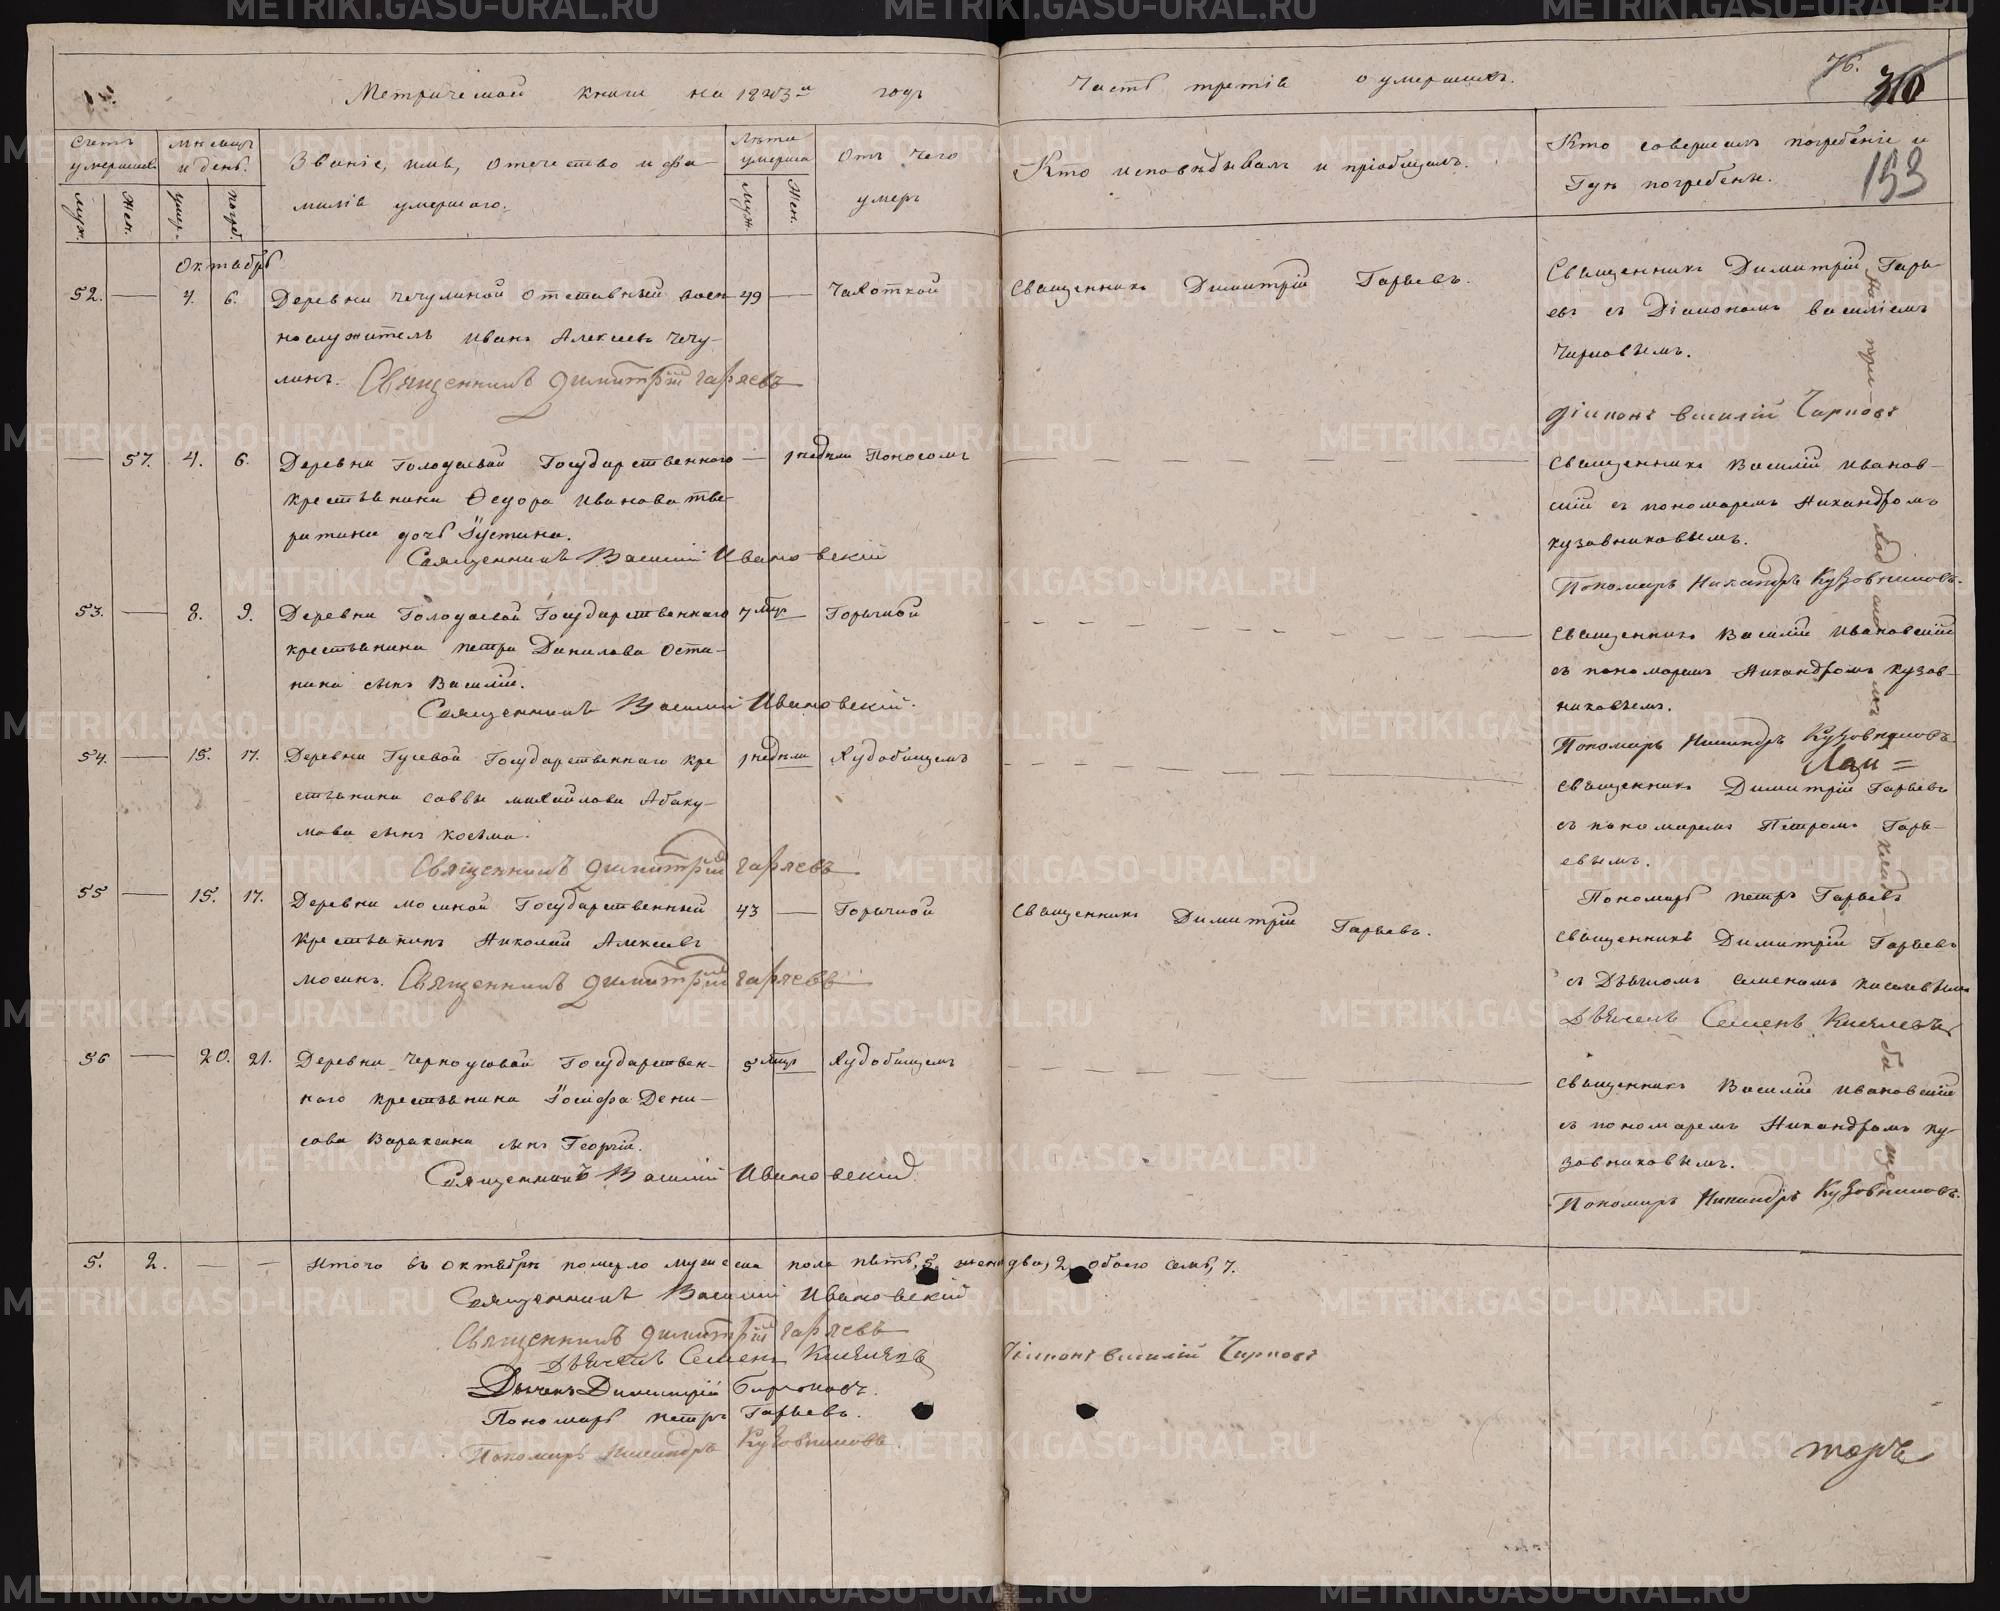 Метрической книги на 1843й годъ
Часть третія о умершихъ.
76.
310
193
Счетъ умершихъ
Муж.
Жен.
Мѣсяцъ и день.
умер.
погреб.
Званіе, имя, отечество и фамилія умершаго.
Лѣта умерша
Муж.
Жен.
Отъ чего умеръ
Кто исповѣдывалъ и пріобщалъ.
Кто совершалъ погребеніе и гдѣ погребены.
Октябрь
52. 4. 6. Деревни Чечулиной отставный воен- 49 Чахоткой
Священникъ Димитрій Гаряевъ.
нослужитель Иванъ Алексѣевъ Чечу-
линъ. Священникъ Димитрій Гаряевъ
Священникъ Димитрій Гаря-
евъ съ Діакономъ Василіемъ
Чирковымъ.
Діаконъ Василій Чирковъ
57. 4. 6. Деревни Голодаевой Государственнаго 1 недѣли Поносомъ
крестьянина Ѳедора Иванова Тве-
ритина дочь Іустина.
Священникъ Василій Ивановскій
Священникъ Василій Иванов-
скій съ пономаремъ Никандромъ
Кузовниковымъ.
Пономарь Никандръ Кузовниковъ.
53. 8. 9. Деревни Голодаевой Государственнаго 7 мцъ Горячкой
крестьянина Петра Данилова Оста-
нина сынъ Василій.
Священникъ Василій Ивановскій.
Священникъ Василій Ивановскій
съ пономаремъ Никандромъ Кузов-
никовымъ.
Пономарь Никандръ Кузовниковъ
54. 15. 17. Деревни Гусевой Государственнаго кре 1 недѣли Худобищемъ
стьянина Саввы Михайлова Абаку-
мова сынъ Косьма.
Священникъ Димитрій Гаряевъ
Священникъ Димитрій Гаряевъ
съ пономаремъ Петромъ Гаря-
евымъ.
Пономарь Петръ Гаряевъ
55 15. 17. Деревни Мосиной Государственный 43 Горячкой
Священникъ Димитрій Гаряевъ.
крестьянинъ Николай Алексѣевъ
Мосинъ. Священникъ Димитрій Гаряевъ
Священникъ Димитрій Гаряевъ
съ Дьячкомъ Семеномъ Киселевымъ
Дьячекъ Семенъ Киселевъ
56 20. 21. Деревни Черноусовой Государствен- 5 мцъ Худобищемъ
наго крестьянина Іосифа Дени-
сова Вараксина сынъ Георгій.
Священникъ Василій Ивановскій
Священникъ Василій Ивановскій
съ пономаремъ Никандромъ Ку-
зовниковымъ.
Пономарь Никандръ Кузовниковъ.
5. 2. Итого въ Октябрѣ померло мужеска пола пять, 5, женска два, 2, обоего семь, 7.
Священникъ Василій Ивановскій
Священникъ Димитрій Гаряевъ
Дьячекъ Семенъ Киселевъ
Діаконъ Василій Чирковъ
Пономарь Петръ Гаряевъ.
Пономарь Никандръ Кузовниковъ.
на при
клад
би
ще
METRIKI.GASO-URAL.RU